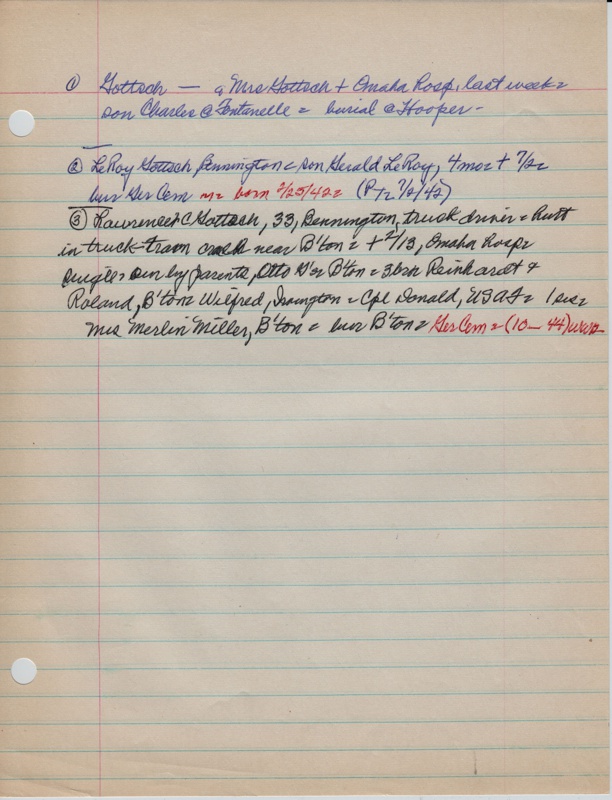 ① Gottsch — a Mrs Gottsch + Omaha hosp, last week =
son Charles @ Fontanelle = burial @ Hooper -
② LeRoy Gottsch, Bennington = son Gerald LeRoy, 4 mos + 7/2 =
bur Ger Cem = born 2/25/42 = (P 7/2/42)
③ Lawrence C Gottsch, 33, Bennington, truck driver = hurt
in truck-train crash near B'ton = + 2/13, Omaha hosp =
single = sur by parents, Otto G's B'ton = 3 bro Reinhardt &
Roland, B'ton = Wilfred, Irvington = Cpl Donald, USAF = 1 sis =
Mrs Merlin Miller, B'ton = bur B'ton = Ger Cem = (10 — 44)